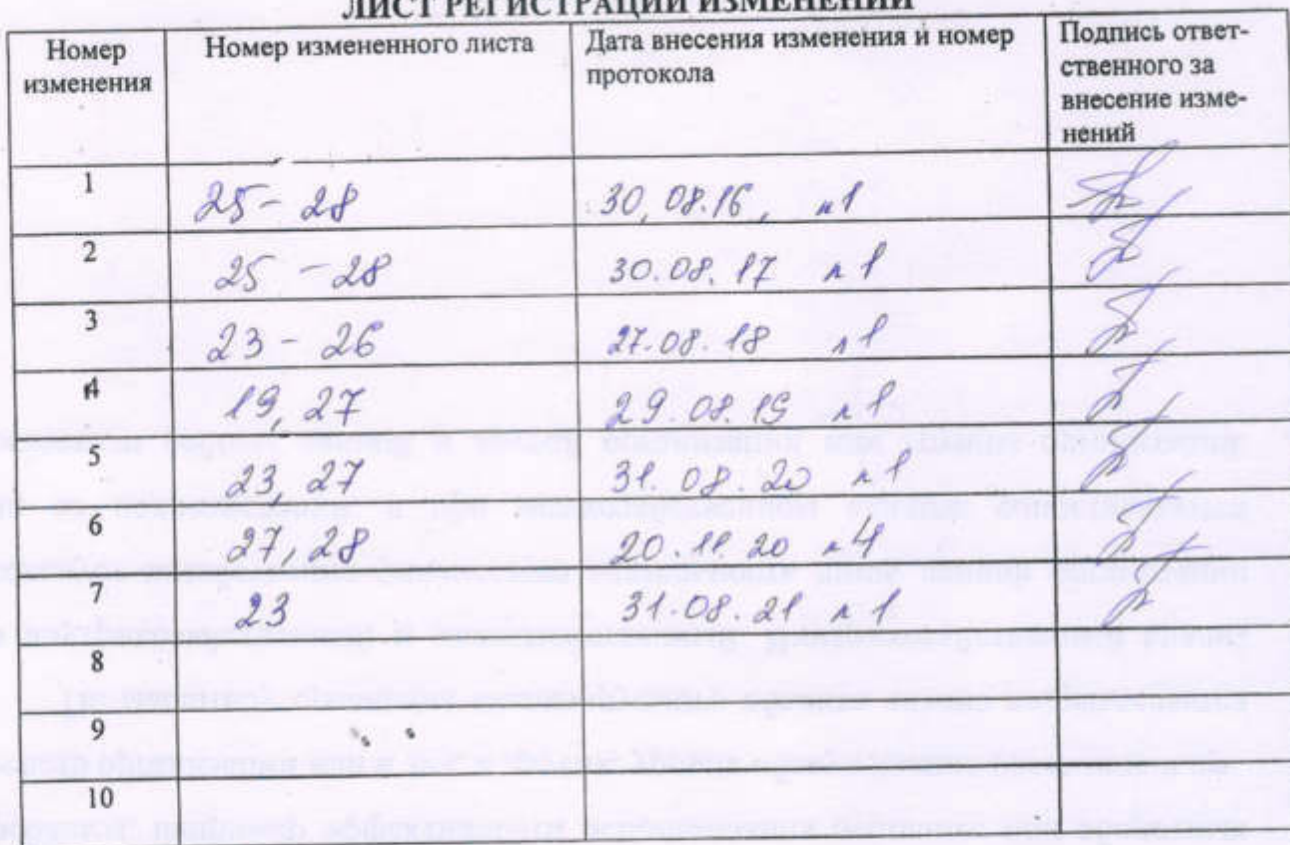 ЛИСТ РЕГИСТРАЦИИ ИЗМЕНЕНИЙ
Номер изменения Номер измененного листа Дата внесения изменения и номер протокола Подпись ответ-
ственного за
внесение изме-
нений
1 25 - 28 30.08.16, п1
2 25 - 28 30.08.17 п1
3 23 - 26 27.08.18 п1
4 19, 27 29.08.19 п1
5 23, 27 31.08.20 п1
6 27, 28 20.11.20 п4
7 23 31.08.21 п1
8
9
10